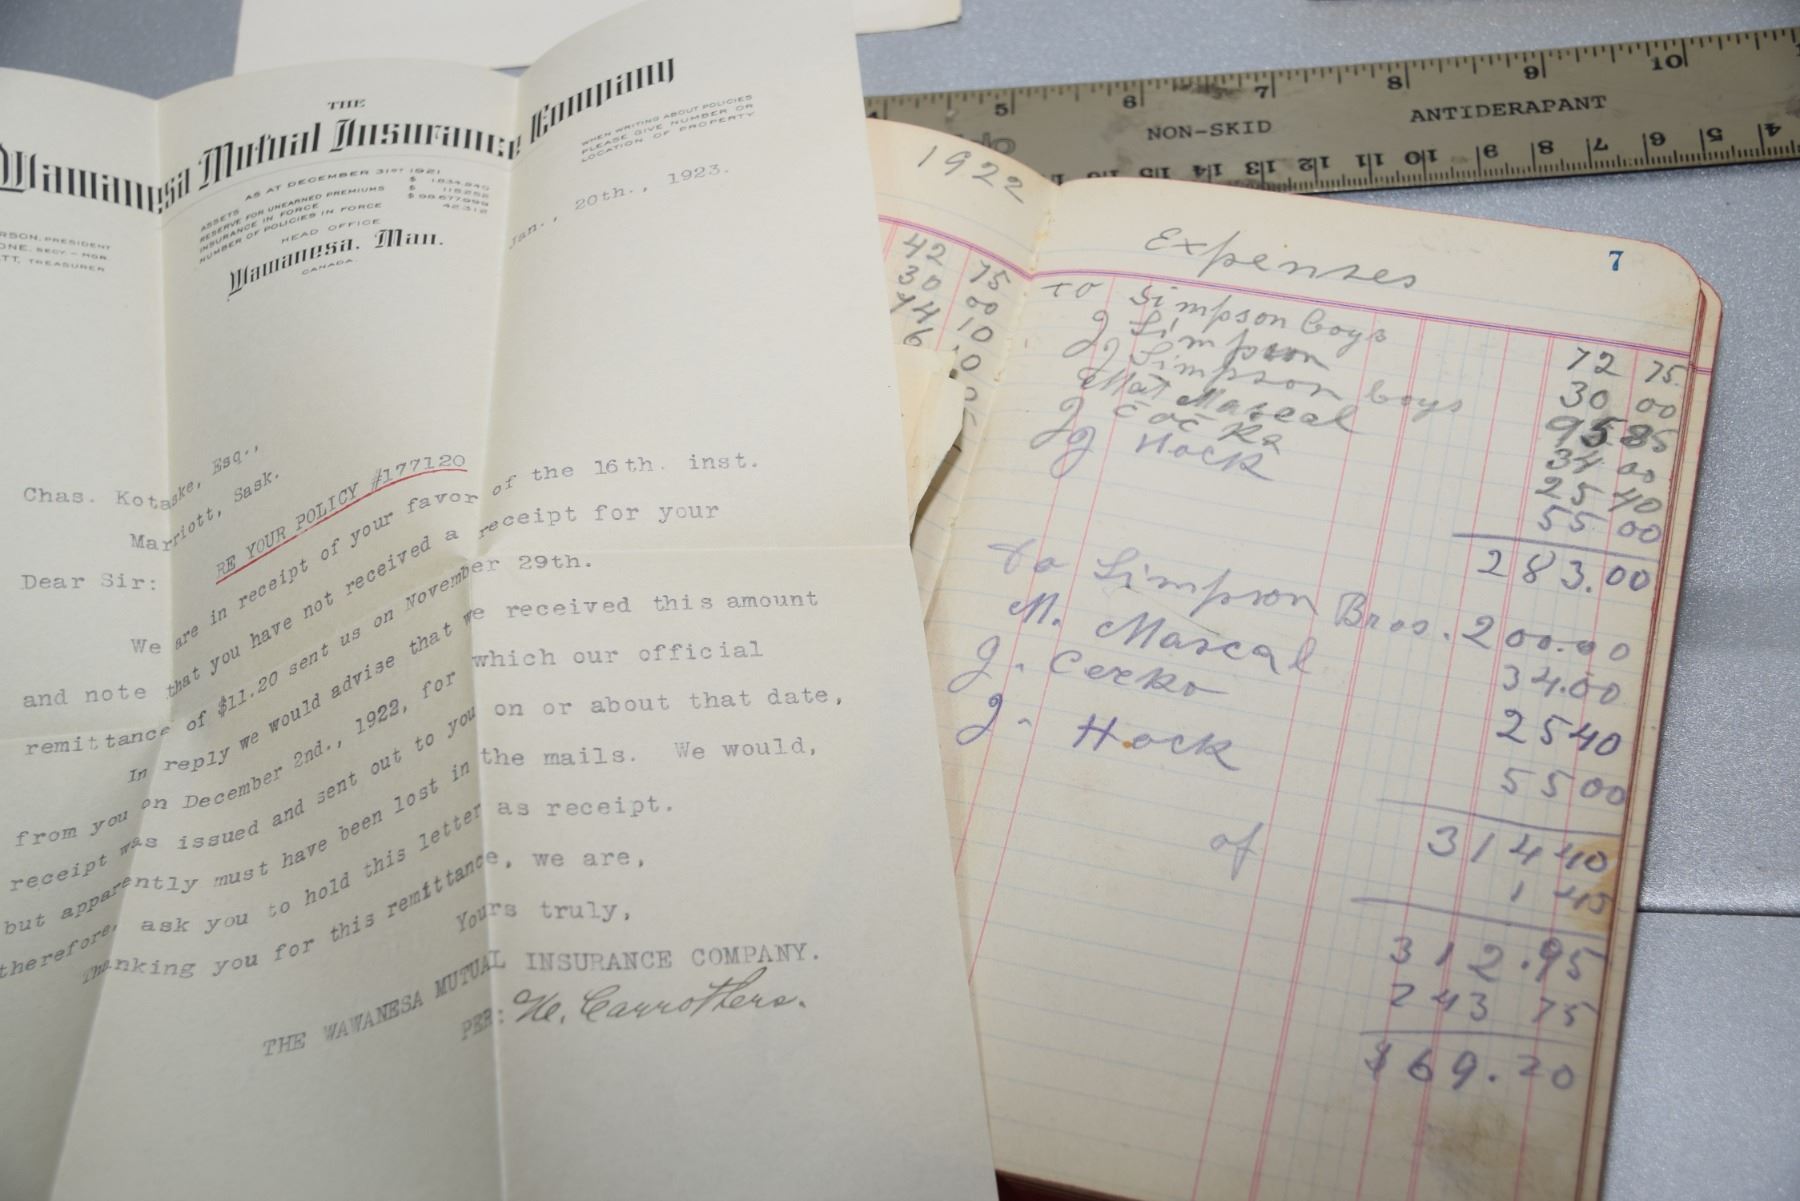 THE
Wawanesa Mutual Insurance Company
RSON, PRESIDENT
ONE, SECY.-MGR.
TT, TREASURER
AS AT DECEMBER 31ST 1921
ASSETS $ 1834840
RESERVE FOR UNEARNED PREMIUMS
INSURANCE IN FORCE
NUMBER OF POLICIES IN FORCE 42312
HEAD OFFICE
Wawanesa, Man.
CANADA.
WHEN WRITING ABOUT POLICIES
PLEASE GIVE NUMBER OR
LOCATION OF PROPERTY
Jan., 20th., 1923.
Chas. Kotaske, Esq.,
Marriott, Sask.
RE YOUR POLICY #177120
Dear Sir:
We are in receipt of your favor of the 16th. inst.
and note that you have not received a receipt for your
remittance of $11.20 sent us on November 29th.
In reply we would advise that we received this amount
from you on December 2nd., 1922, for which our official
receipt was issued and sent out to you on or about that date,
but apparently must have been lost in the mails. We would,
therefore, ask you to hold this letter as receipt.
Thanking you for this remittance, we are,
Yours truly,
THE WAWANESA MUTUAL INSURANCE COMPANY.
PER: Carrothers.
5 6 7 8 9 10
NON-SKID ANTIDERAPANT
16 15 14 13 12 11 10 9 8 7 6 5 4
1922
42 75
30 00
14 10
6
Expenses 7
to Simpson boys 72 75
J Simpson 30 00
J Simpson boys 95 85
Mat Mascal 34 00
J 25 40
J Hock 55 00
283.00
To Simpson Bros. 200.00
M. Mascal 34.00
J. Cecko 25 40
J. Hock 55 00
314 40
of 1 45
312.95
243 75
$69.20